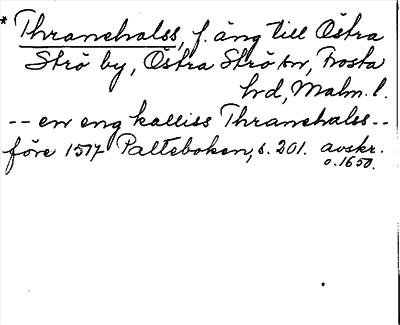 * Thranehalss, f. äng till Östra
Strö by, Östra Strö sn, Frosta
hd, Malm. l.
-- en eng kalliss Thranehalss --
före 1517 Palteboken, s. 201. avskr.
o. 1650.